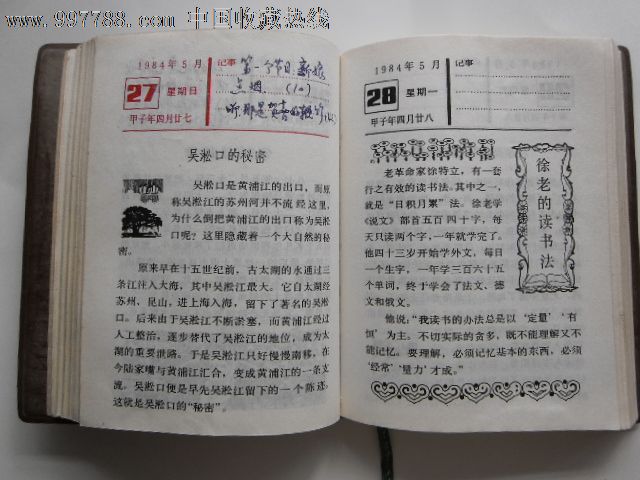 www.997788.com 中国收藏热线
1984年5月
27 星期日
甲子年四月廿七
记事
第一个节目、新娘
点烟 (10)
吴淞口的秘密
吴淞口是黄浦江的出口，而原
称吴淞江的苏州河并不流经这里，
为什么倒把黄浦江的出口称为吴淞
口呢？这里隐藏着一个大自然的秘
密。
原来早在十五世纪前，古太湖的水通过三
条江注入大海，其中吴淞江最大。它自太湖经
苏州、昆山，进上海入海，留下了著名的吴淞
口。后来由于吴淞江不断淤塞，而黄浦江经过
人工整治，逐步替代了吴淞江的地位，成为太
湖的重要泄路。于是吴淞江只好慢慢南移，在
今陆家嘴与黄浦江汇合，变成黄浦江的一条支
流。吴淞口便是早先吴淞江留下的一个陈迹，
这就是吴淞口的“秘密”。
1984年5月
28 星期一
甲子年四月廿八
记事
徐老的读书法
老革命家徐特立，有一套
行之有效的读书法。其中之一，
就是“日积月累”法。徐老学
《说文》部首五百四十字，每
天只读两个字，一年就学完了。
他四十三岁开始学外文，每日
一个生字，一年学三百六十五
个单词，终于学会了法文、德
文和俄文。
他说：“我读书的办法总是以‘定量’‘有
恒’为主。不切实际的贪多，既不能理解又不
能记忆。要理解，必须记忆基本的东西，必须
‘经常’‘量力’才成。”